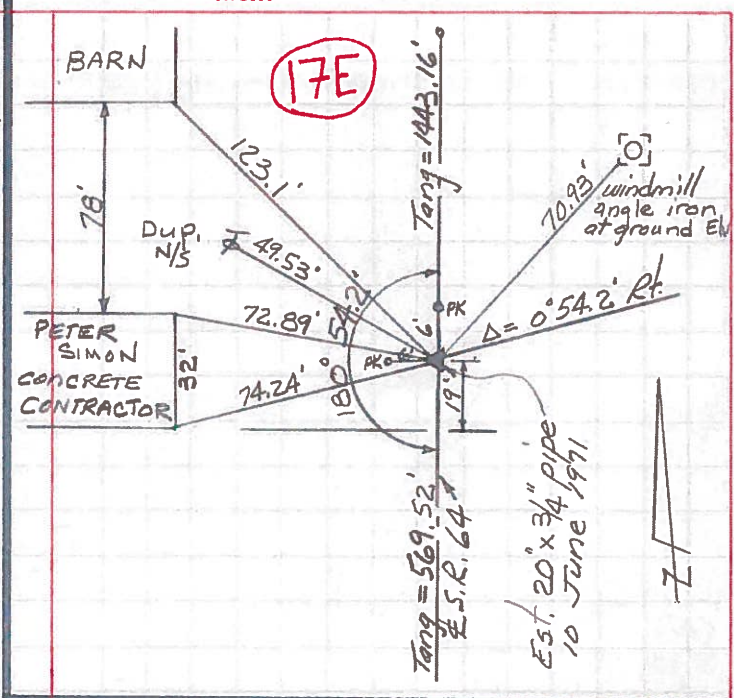 BARN
17E
Tang = 1443.16'
123.1'
78'
Dup.
N/S
49.53'
70.93'
windmill
angle iron
at ground
72.89'
180° 54.2'
PK
6'
PK
Δ = 0°54.2' Rt.
PETER
SIMON
CONCRETE
CONTRACTOR
32'
74.24'
19'
Tang = 569.52'
S.R. 64
Est. 20" x 3/4" pipe
10 June 1971